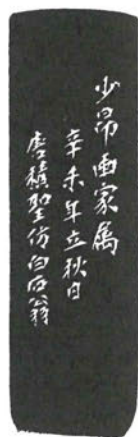 少昂画家属
辛未年立秋日
唐積聖仿白石翁